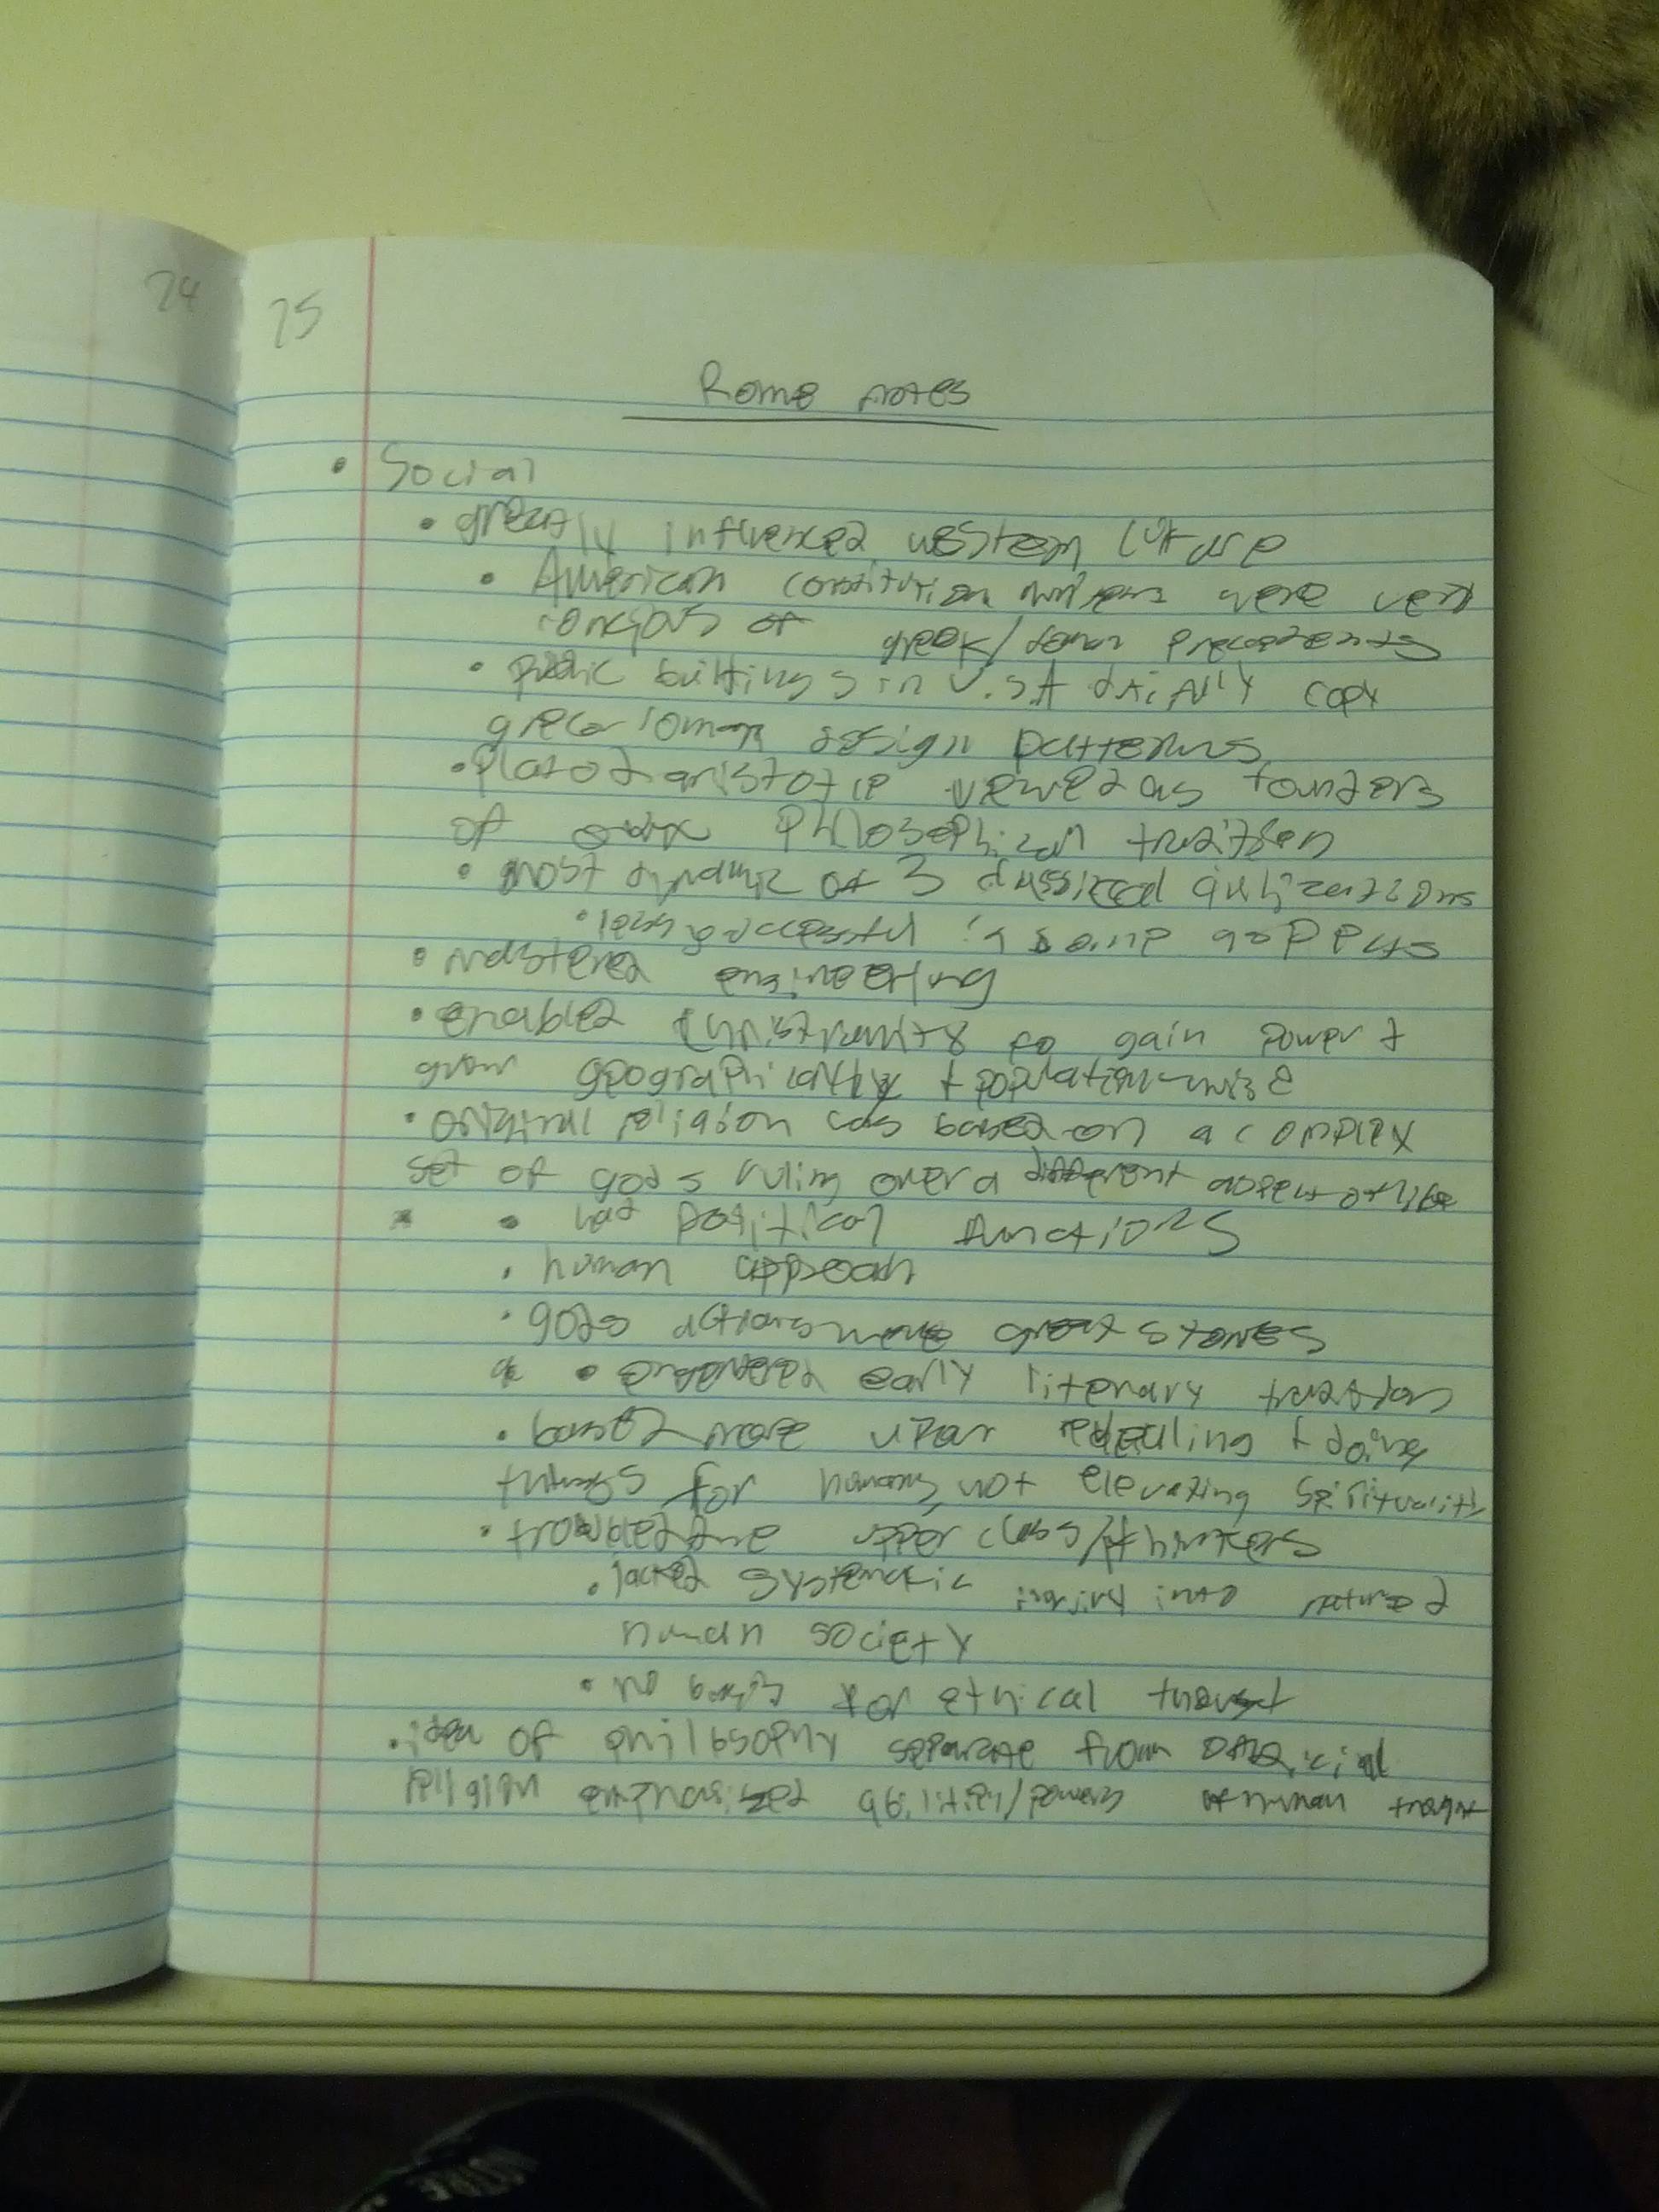 24
25
Rome notes
• Social
• greatly influenced western culture
• American constitution writers were very
concious of greek/roman precedents
• public buildings in U.S.A copy
greco roman design patterns
• Plato & aristotle viewed as founders
of philosophical tradition
• most dynamic of 3 classical civilizations
• less successful in some aspects
• mastered engineering
• enabled christianity to gain power &
grow geographically + population-wise
• original religion was based on a complex
set of gods ruling over different aspects of life
* • had political functions
• human approach
• gods actions were great stories
* • early literary tradition
• based more upon & doing
things for humans, not elevating spirituality
• upper class/thinkers
• lacked systematic inquiry into nature &
human society
• no basis for ethical thought
• idea of philosophy separate from official
religion emphasized abilities/powers of human thought